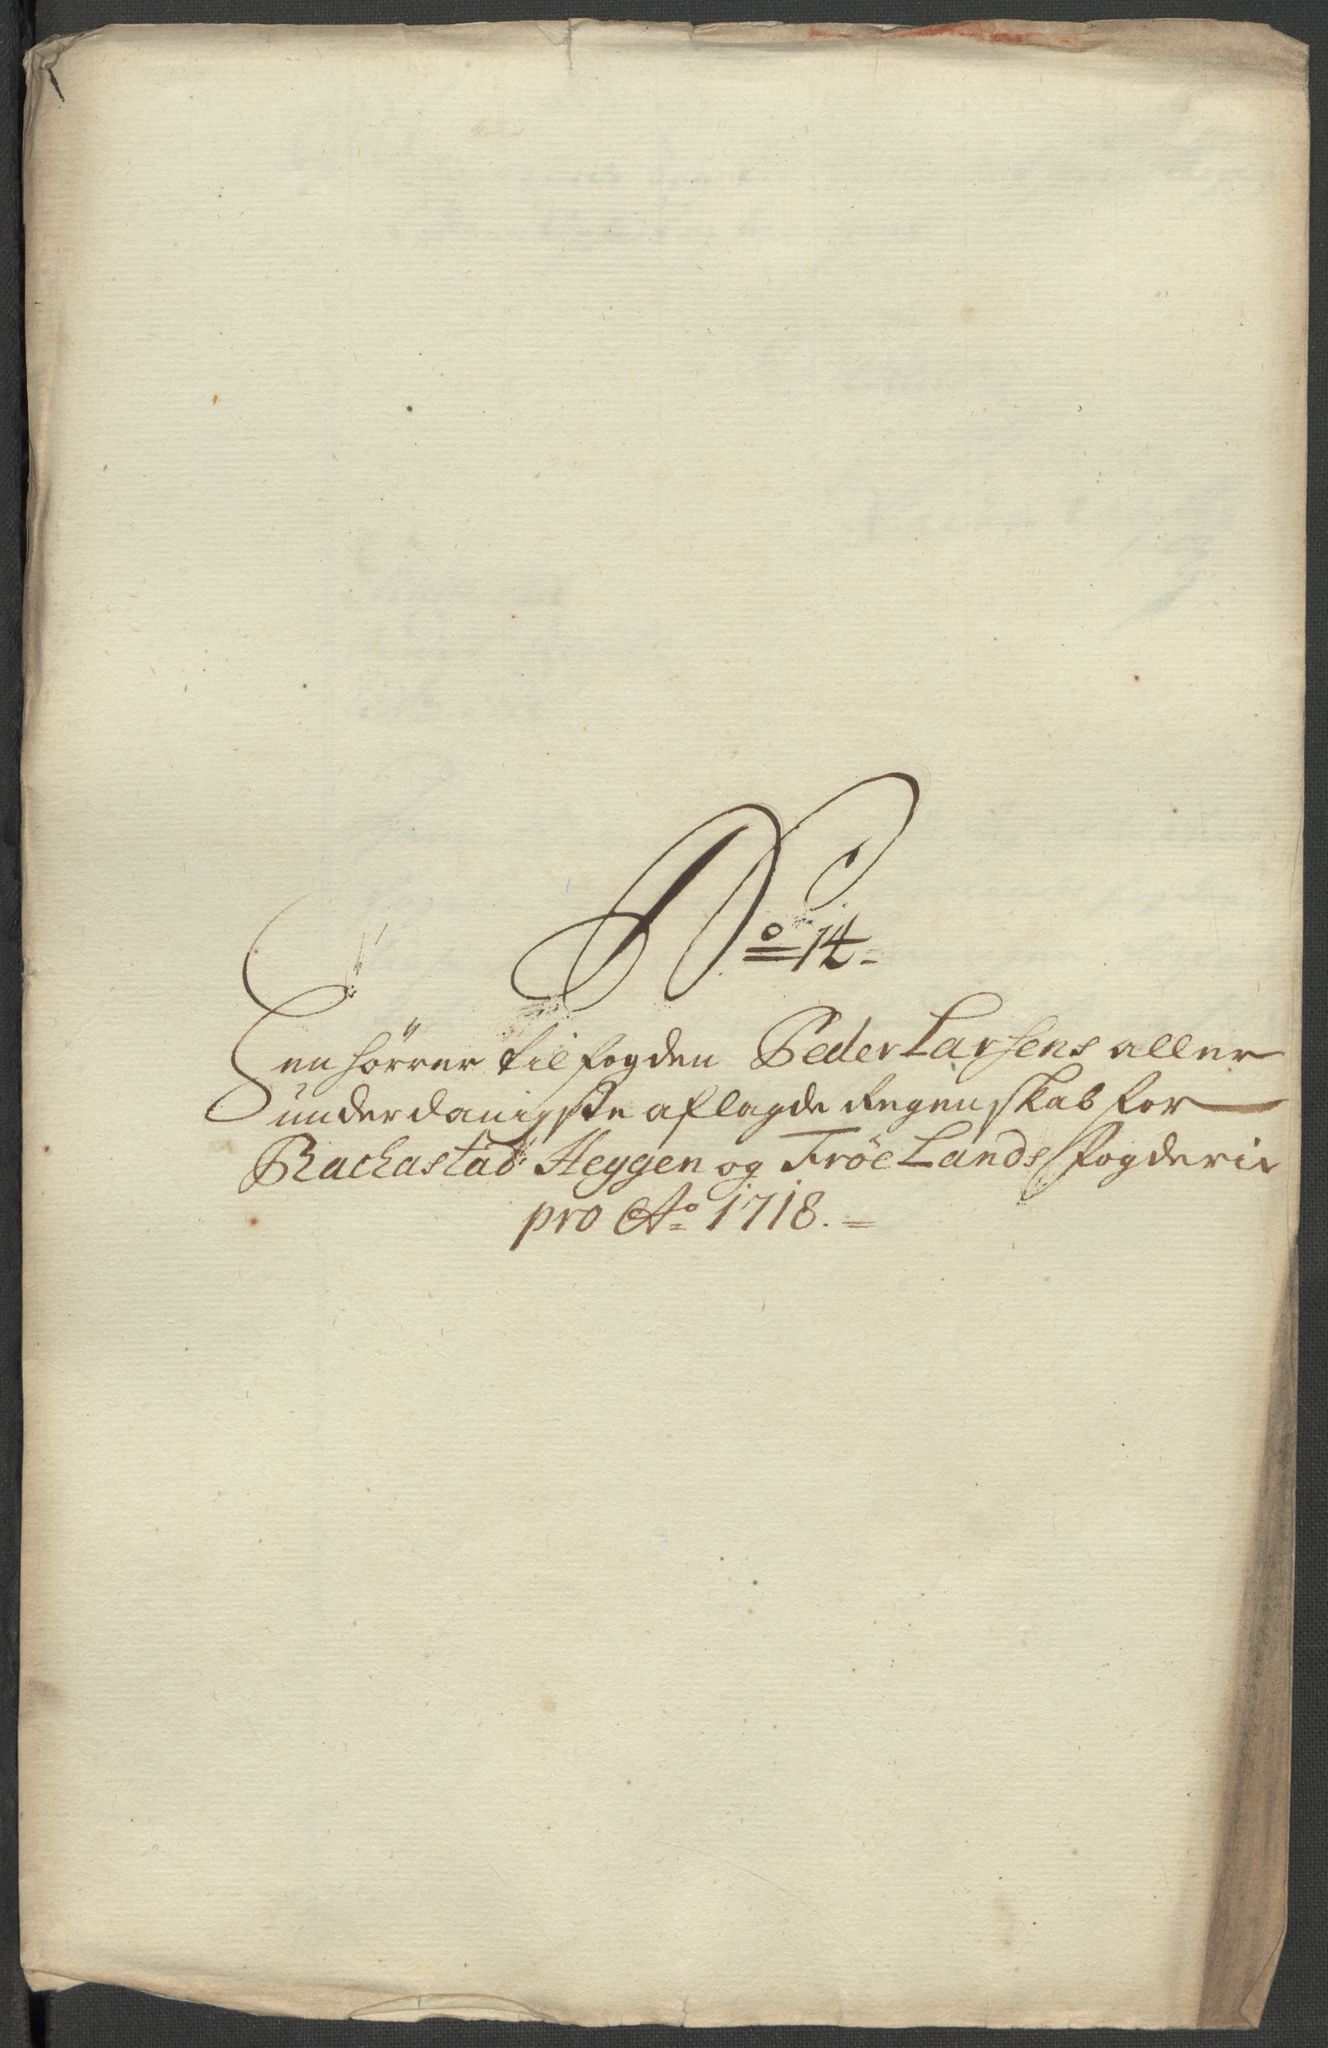 No 14.
Henhörrer til fogden Peder Larsens aller
underdanigste aflagde Regenskab for
Rackastad Heggen og Fröelands fogderie
pro Ao 1718.